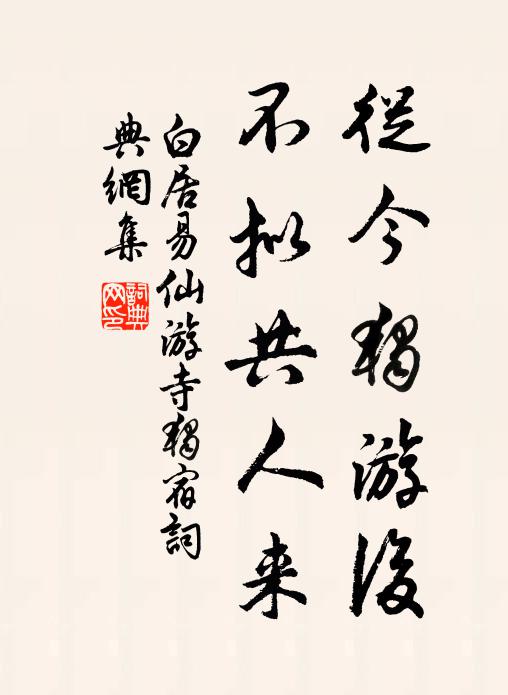 從今獨游後
不拟共人来
白居易仙游寺獨宿詞
典網集
詞典
网印